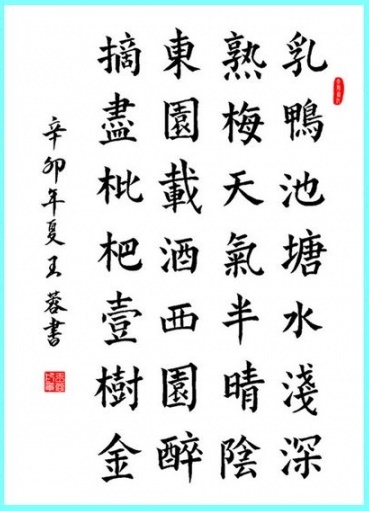 乳鴨池塘水淺深
熟梅天氣半晴陰
東園載酒西園醉
摘盡枇杷壹樹金
辛卯年夏王蓉書